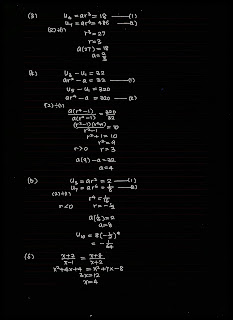 (3) U₄ = ar³ = 18 —(1)
U₇ = ar⁶ = 486 —(2)
(2)÷(1) r³ = 27
r = 3
a(27) = 18
a = 2/3
U₃ - U₁ = 32
ar² - a = 32 —(1)
U₅ - U₁ = 320
ar⁴ - a = 320 —(2)
(2)÷(1)
a(r⁴-1)/a(r²-1) = 320/32
(r²-1)(r²+1)/r²-1 = 10
r²+1 = 10
r² = 9
r>0 r = 3
a(9) - a = 32
a = 4
(5) U₃ = ar² = 2 —(1)
U₇ = ar⁶ = 1/8 —(2)
(2)÷(1)
r⁴ = 1/16
r<0 r = -1/2
a(1/4) = 2
a = 8
U₁₀ = 8(-1/2)⁹
= -1/64
(6) x+2/x-1 = x+8/x+2
x²+4x+4 = x²+7x-8
3x = 12
x = 4